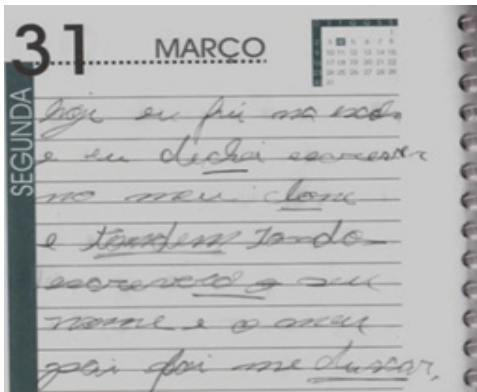 31 MARÇO
SEGUNDA
hoji eu fui na escola
e eu dechei escrever
no meu
e tandem Jando
escrevedo o seu
nome e o meu
pai foi me duscar,